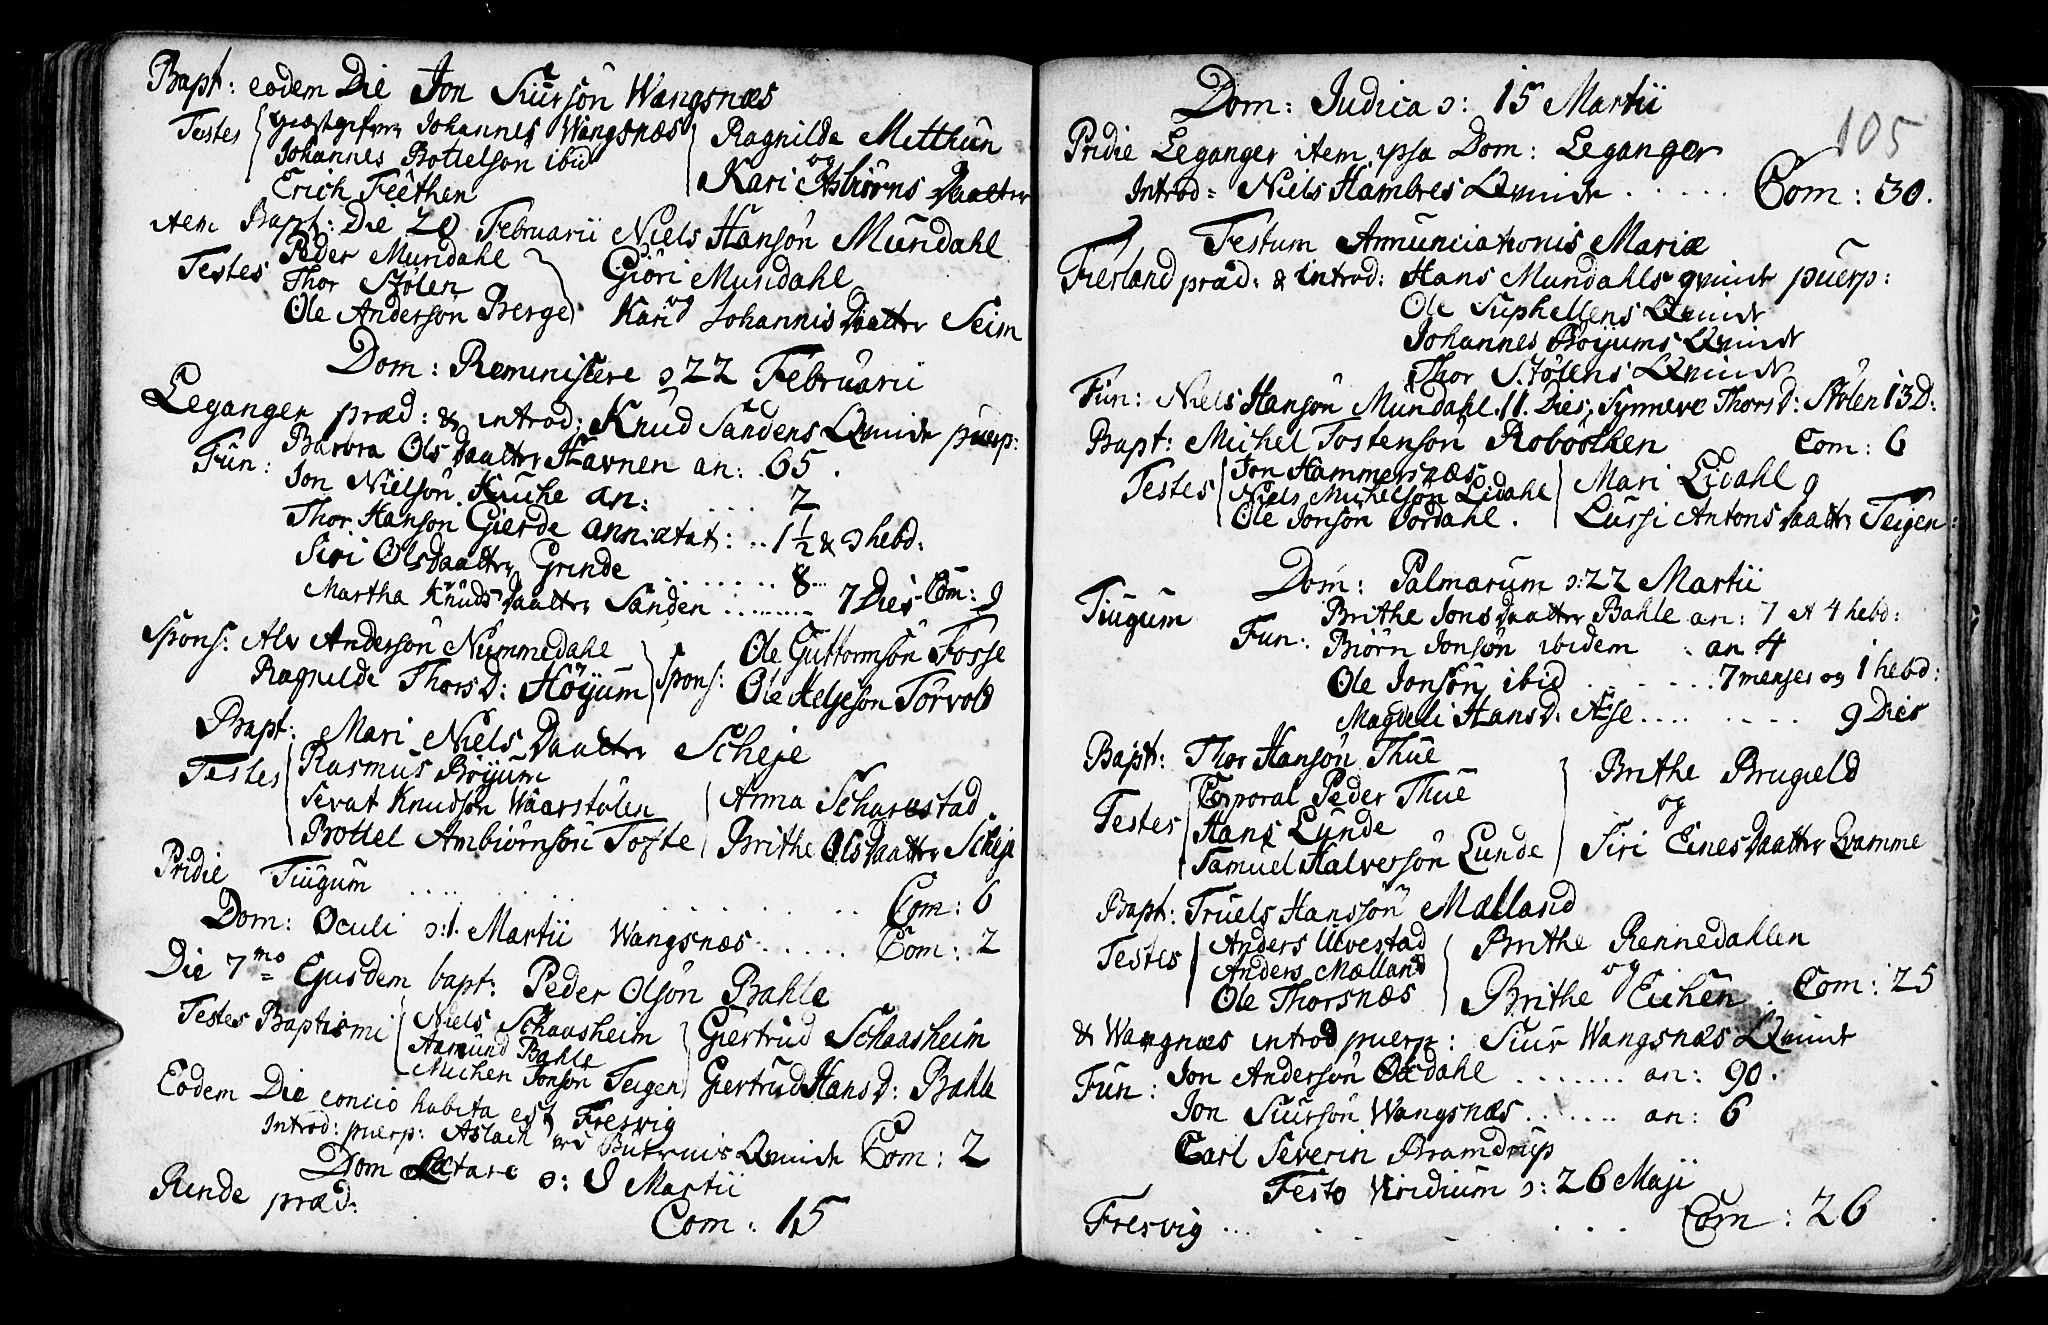 Bapt: eodem Die Jon Siursön Wangsnæs
Testes Giæstgifvern Johannes Wangsnæs Ragnilda Metthun
Johannes Bottelsön ibid og
Erich Feethen Kari Asbiörns Daatter
item Bapt: Die 20 Februarii Niels Hansön Mundahl
Testes Peder Mundahl Giöri Mundahl
Thor Stölen og
Ole Andersön Berge Kari Johannis Daatter Seim
Dom: Reminiscere ɔ 22 Februarii
Leganger præd: & introd: Knud Sandens Qvinde puerp:
Fun: Barbra Ols Daatter Havnen an: 65.
Jon Nielsön Henche an: .... 7
Thor Hansön Gierde ann: ætat: .. 1½ & 3 hebd:
Siri Ols Daatter Grinde ........ 8 ...
Martha Knuds Daatter Sanden ........ 7 Dies Com: 9
Spons: Alv Andersön Nummedahl Ole Guttormsön Fosse
Ragnilde Thors D: Höyum Spons: Ole Helgeson Torvold
Bapt: Mari Niels Daatter Scheje
Testes Rasmus Böyum
Sevat Knudsön Waarstolen Anna Scharestad
Bottel Ambiörnsön Tofte Brithe Ols Daatter Scheje
Pridie Tiugum .... Com: 6
Dom: Oculi ɔ: 1. Martii Wangsnæs ..... Com: 2
Die 7mo Ejusdem bapt: Peder Olsön Bahle
Testes Baptismi Niels Schaasheim Giertrud Schaasheim
Aamund Bahle
Michen Jonsön Teigen Giertrud Hans D: Bahle
Eodem Die concio habita est Fresvig
Introd: puerp: Aslach Qvinde Com: 2
Dom Lætare ɔ: 8 Martii
Rinde præd: Com: 15
105
Dom: Judica ɔ: 15 Martii
Pridie Leganger item ipsa Dom: Leganger
Introd: Niels Hambres Qvinde ..... Com: 30.
Festum Annunciationis Mariæ
Fierland præd: & introd: Hans Mundahls qvinde puerp:
Ole Suphellens Qvinde
Johannes Böyums Qvinde
Thor Stölens Qvinde
Fun: Niels Hansön Mundahl. 11. Dies, Synneve Thors D: Stölen 13 D:
Bapt: Michel Tostensön Roboöchen Com: 6
Testes Jon Hammersnæs Mari Lidahl og
Niels Michelsön Lidahl
Ole Jonsön Jordahl. Lussi Antons Daatter Teigen:
Dom: Palmarum ɔ: 22 Martii
Tiugum Brithe Jons Daatter Bahle an: 7 et 4 hebd:
Fun: Biörn Jonsön ibidem . an 4
Ole Jonsön ibid ....... 7 menses og 1 hebd:
Magdeli Hans D: Asse .... ..... 9 Dies
Bapt: Thor Hansön Thue
Testes Corporal Peder Thue Brithe Brugield
Hans Lunde og
Samuel Halversön Lunde Siri Eines Daatter Qvamme
Bapt: Truels Hanssön Mælland
Testes Anders Ulvestad Brithe Rennedahlen
Anders Mælland og
Ole Thorsnæs Brithe Eichen. Com: 25
& Wangnæs introd puerp: Siur Wangsnæs Qvinde
Fun: Jon Andersön Oxdahl ........ an: 90.
Jon Siursön Wangsnæs ....... an: 6
Carl Severin Bramdrup
Festo Viridium ɔ: 26 Maji
Fresvig ... Com: 26